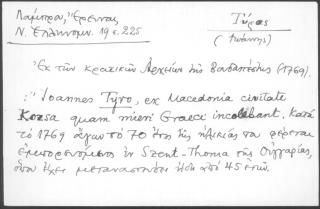 Λάμπρου, Έρευναι,
Ν. Ελληνομν. 19 σ. 225
Τύρος
(Ιωάννης)
Ἐκ τῶν κρατικῶν Ἀρχείων τῆς Βουδαπέστης (1769).
:" Ioannes Tyro, ex Macedonia civitate
Kozsa quam mieri Graeci incolebant, κατὰ
τὸ 1769 ἄγων τὸ 70 ἔτος τῆς ἡλικίας του φέρεται
ἐμπορευόμενος ἐν Szent-Thoma τῆς Οὑγγαρίας,
ὅπου εἶχε μεταναστεύσει ἤδη ἀπὸ 45 ἐτῶν.